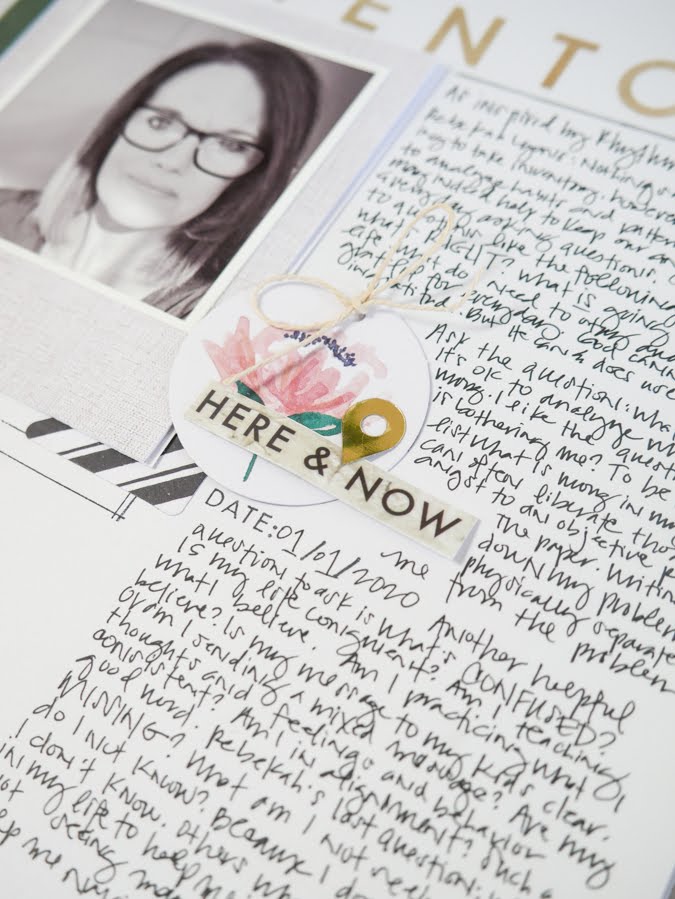 ENTO
As inspired by Rhythm
Rebekah Lyons: Nothing is
key to take inventory. However
to analyze habits and
may indeed help to keep our
every day asking questions.
to questions like the following
what's RIGHT? What is going
life? What do I need to
grateful for everyday.
But He can & does use
Ask the question: wha
It's OK to analyze wh
wrong. I like the quest
is bothering me? To be
list what is wrong in my
can often liberate thos
angst to an objective p
the paper. Writin
me down my problem
physically separate
from the problem
HERE & NOW
DATE: 01/01/2020
Another helpful
question to ask is what's CONFUSED?
Is my life congruent? Am I teaching
what I believe. Am I practicing what I
believe? Is my message to my kids clear.
Or am I sending a mixed message? Are my
thoughts and feelings and behavior
consistent? Am I in alignment? Such a
good word. Rebekah's last question:
MISSING? What am I not
do I not know? Because I do
I don't know. Others
in my life to help me
not seeing
me